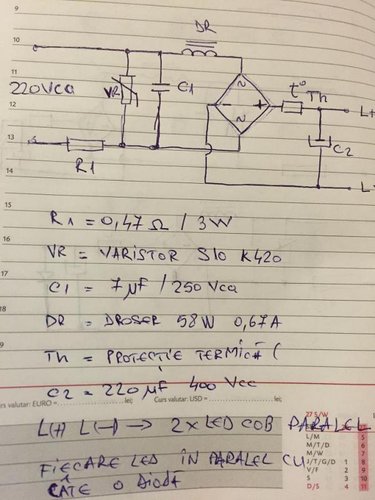 9
10
DR
11
220Vca
VR
C1
t°
Th
L+
12
C2
13
R1
L-
15
R1 = 0,47Ω / 3W
16
VR = VARISTOR S10 K420
17
C1 = 7µF / 250 Vca
18
DR = DROSER 58W 0,67A
Th = PROTECȚIE TERMICĂ (
C2 = 220µF 400 Vcc
Curs valutar: EURO = lei; Curs valutar: USD = lei;
27 S/W
L(+) L(-) → 2x LED COB PARALEL
L/M 5
M/T/D 6
M/W 7
FIECARE LED ÎN PARALEL CU
J/T/G/D 1 8
V/F 2 9
CÂTE O DIODĂ
S 3 10
D/S 4 11